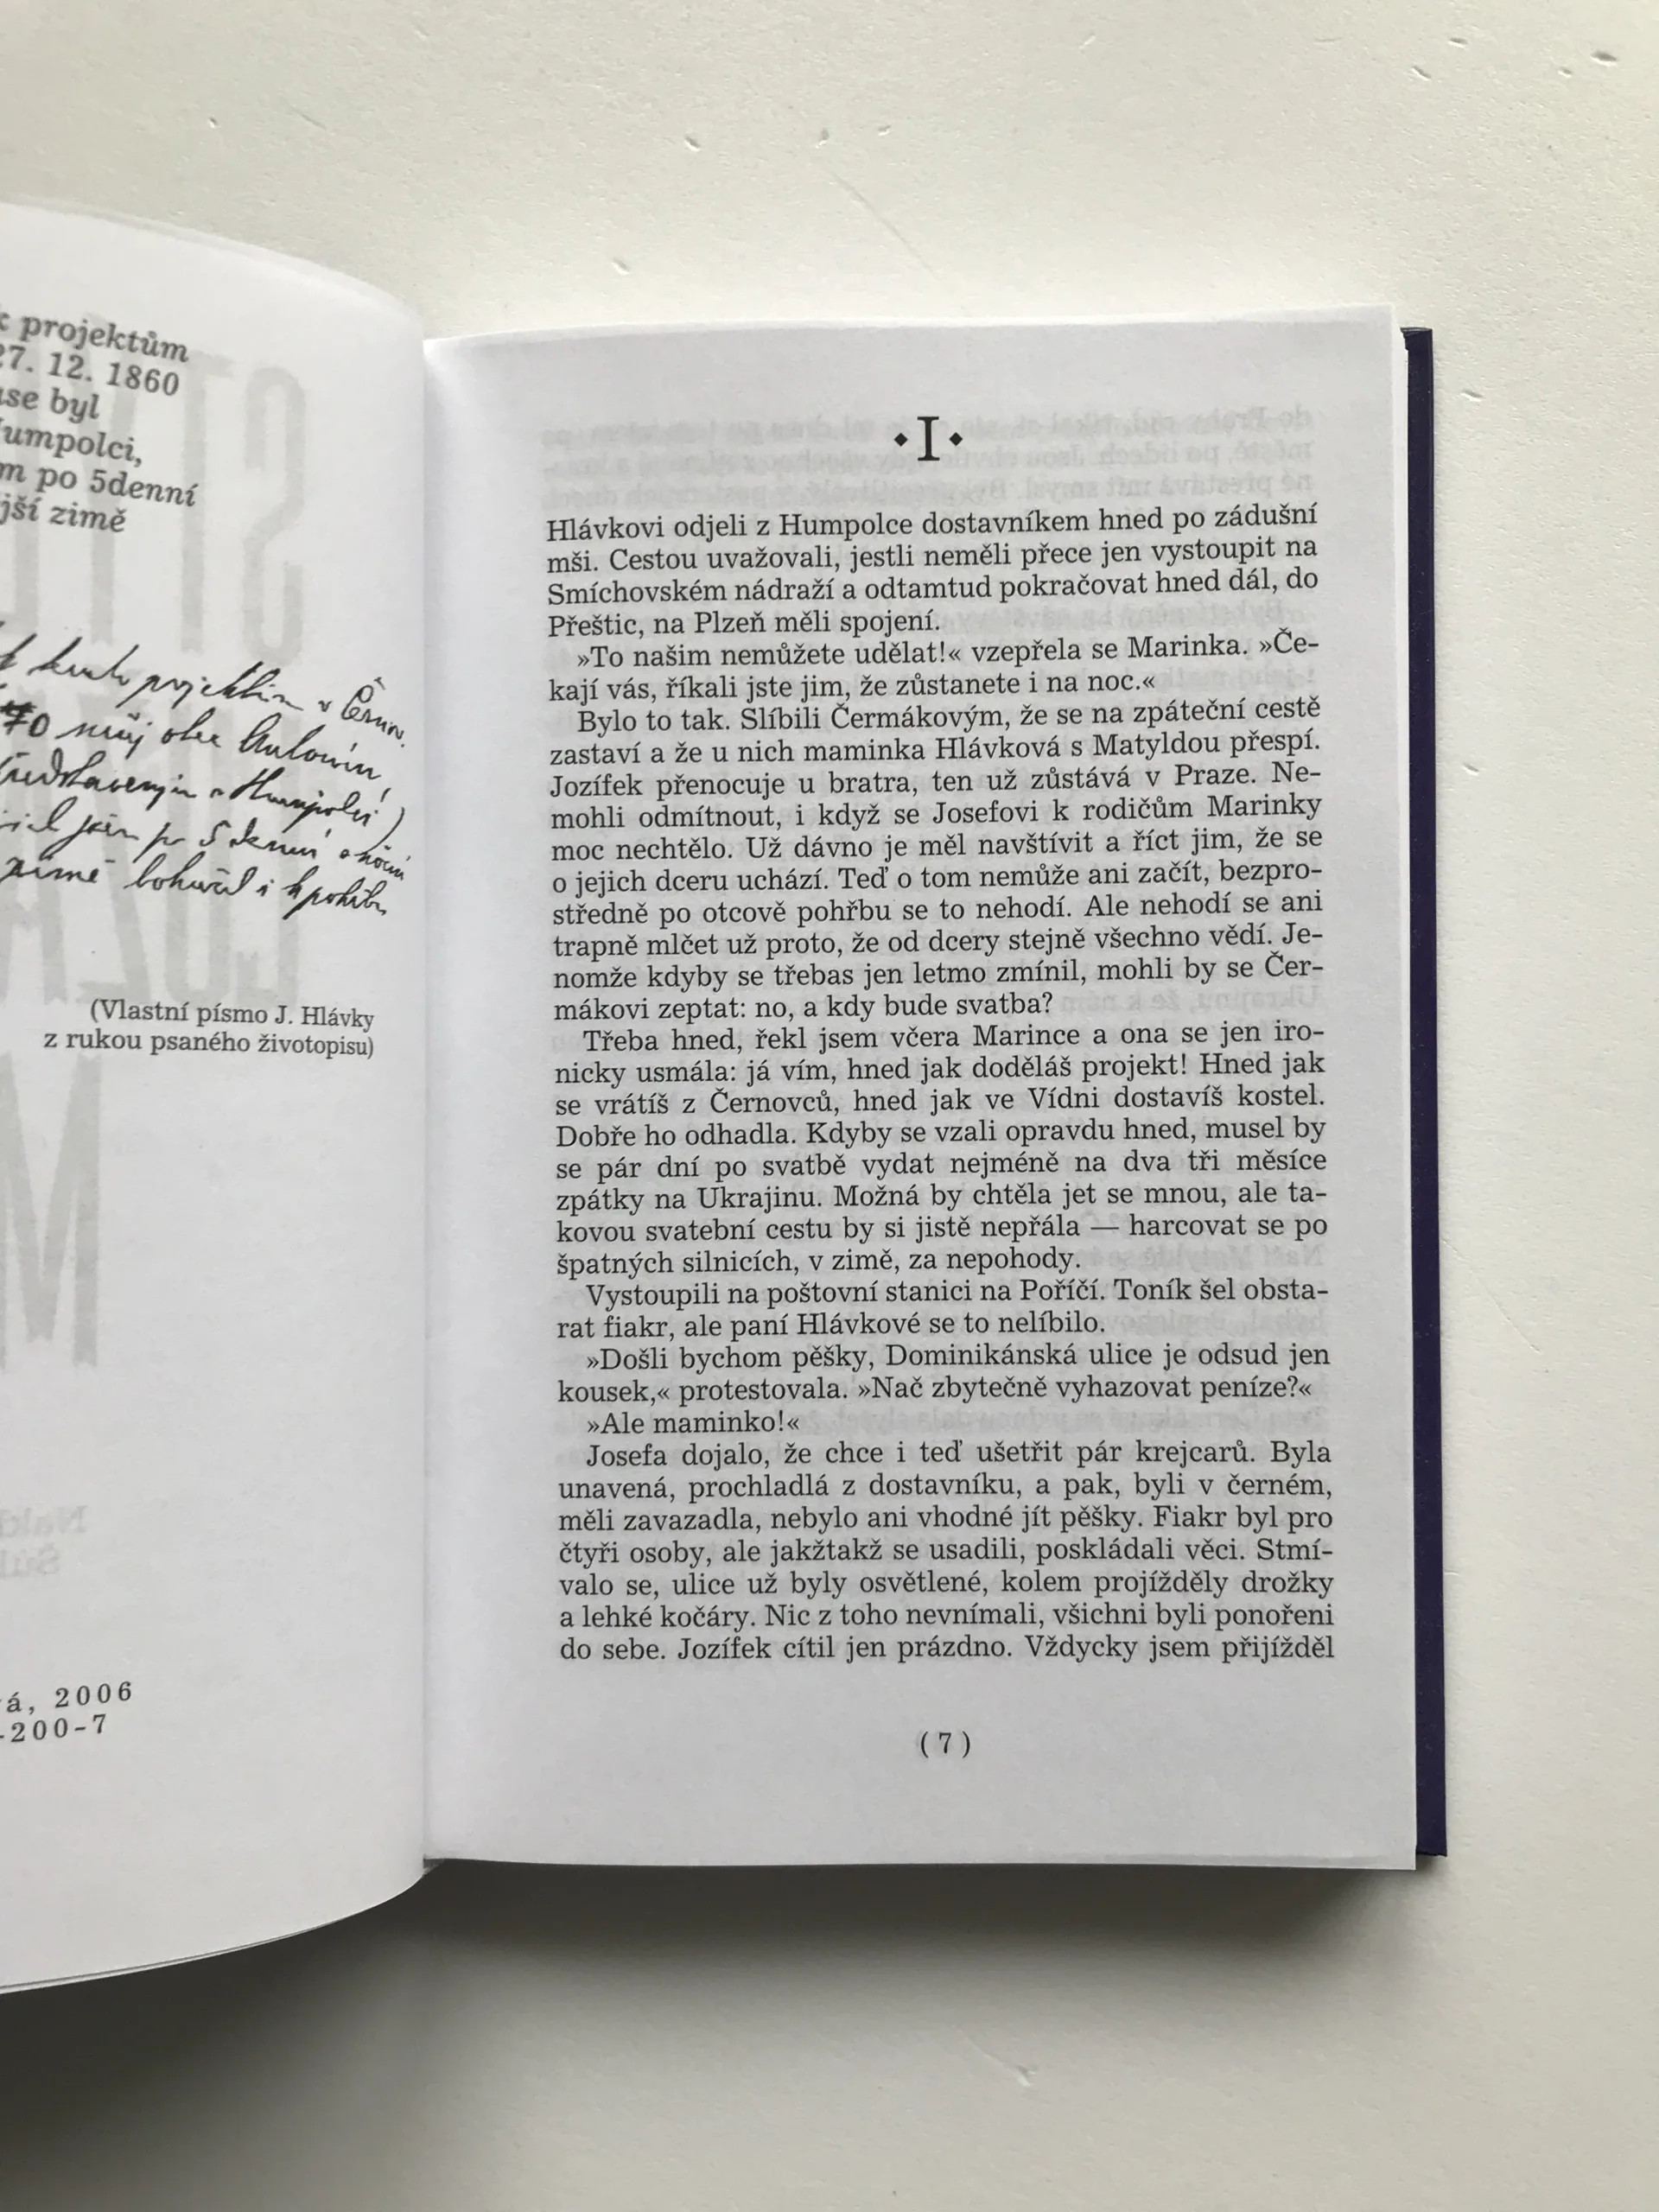 projektům
27. 12. 1860
byl
Humpolci,
po 5denní
zimě
můj otec Antonín
5 denní
bohužel i k pohřbu
(Vlastní písmo J. Hlávky
z rukou psaného životopisu)
2006
-200-7
·I·
Hlávkovi odjeli z Humpolce dostavníkem hned po zádušní
mši. Cestou uvažovali, jestli neměli přece jen vystoupit na
Smíchovském nádraží a odtamtud pokračovat hned dál, do
Přeštic, na Plzeň měli spojení.
»To našim nemůžete udělat!« vzepřela se Marinka. »Če-
kají vás, říkali jste jim, že zůstanete i na noc.«
Bylo to tak. Slíbili Čermákovým, že se na zpáteční cestě
zastaví a že u nich maminka Hlávková s Matyldou přespí.
Jozífek přenocuje u bratra, ten už zůstává v Praze. Ne-
mohli odmítnout, i když se Josefovi k rodičům Marinky
moc nechtělo. Už dávno je měl navštívit a říct jim, že se
o jejich dceru uchází. Teď o tom nemůže ani začít, bezpro-
středně po otcově pohřbu se to nehodí. Ale nehodí se ani
trapně mlčet už proto, že od dcery stejně všechno vědí. Je-
nomže kdyby se třebas jen letmo zmínil, mohli by se Čer-
mákovi zeptat: no, a kdy bude svatba?
Třeba hned, řekl jsem včera Marince a ona se jen iro-
nicky usmála: já vím, hned jak doděláš projekt! Hned jak
se vrátíš z Černovců, hned jak ve Vídni dostavíš kostel.
Dobře ho odhadla. Kdyby se vzali opravdu hned, musel by
se pár dní po svatbě vydat nejméně na dva tři měsíce
zpátky na Ukrajinu. Možná by chtěla jet se mnou, ale ta-
kovou svatební cestu by si jistě nepřála — harcovat se po
špatných silnicích, v zimě, za nepohody.
Vystoupili na poštovní stanici na Poříčí. Toník šel obsta-
rat fiakr, ale paní Hlávkové se to nelíbilo.
»Došli bychom pěšky, Dominikánská ulice je odsud jen
kousek,« protestovala. »Nač zbytečně vyhazovat peníze?«
»Ale maminko!«
Josefa dojalo, že chce i teď ušetřit pár krejcarů. Byla
unavená, prochladlá z dostavníku, a pak, byli v černém,
měli zavazadla, nebylo ani vhodné jít pěšky. Fiakr byl pro
čtyři osoby, ale jakžtakž se usadili, poskládali věci. Stmí-
valo se, ulice už byly osvětlené, kolem projížděly drožky
a lehké kočáry. Nic z toho nevnímali, všichni byli ponořeni
do sebe. Jozífek cítil jen prázdno. Vždycky jsem přijížděl
(7)